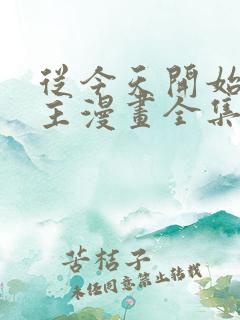 從今天開始
王漫畫全集
苦桔子
未经同意禁止转载